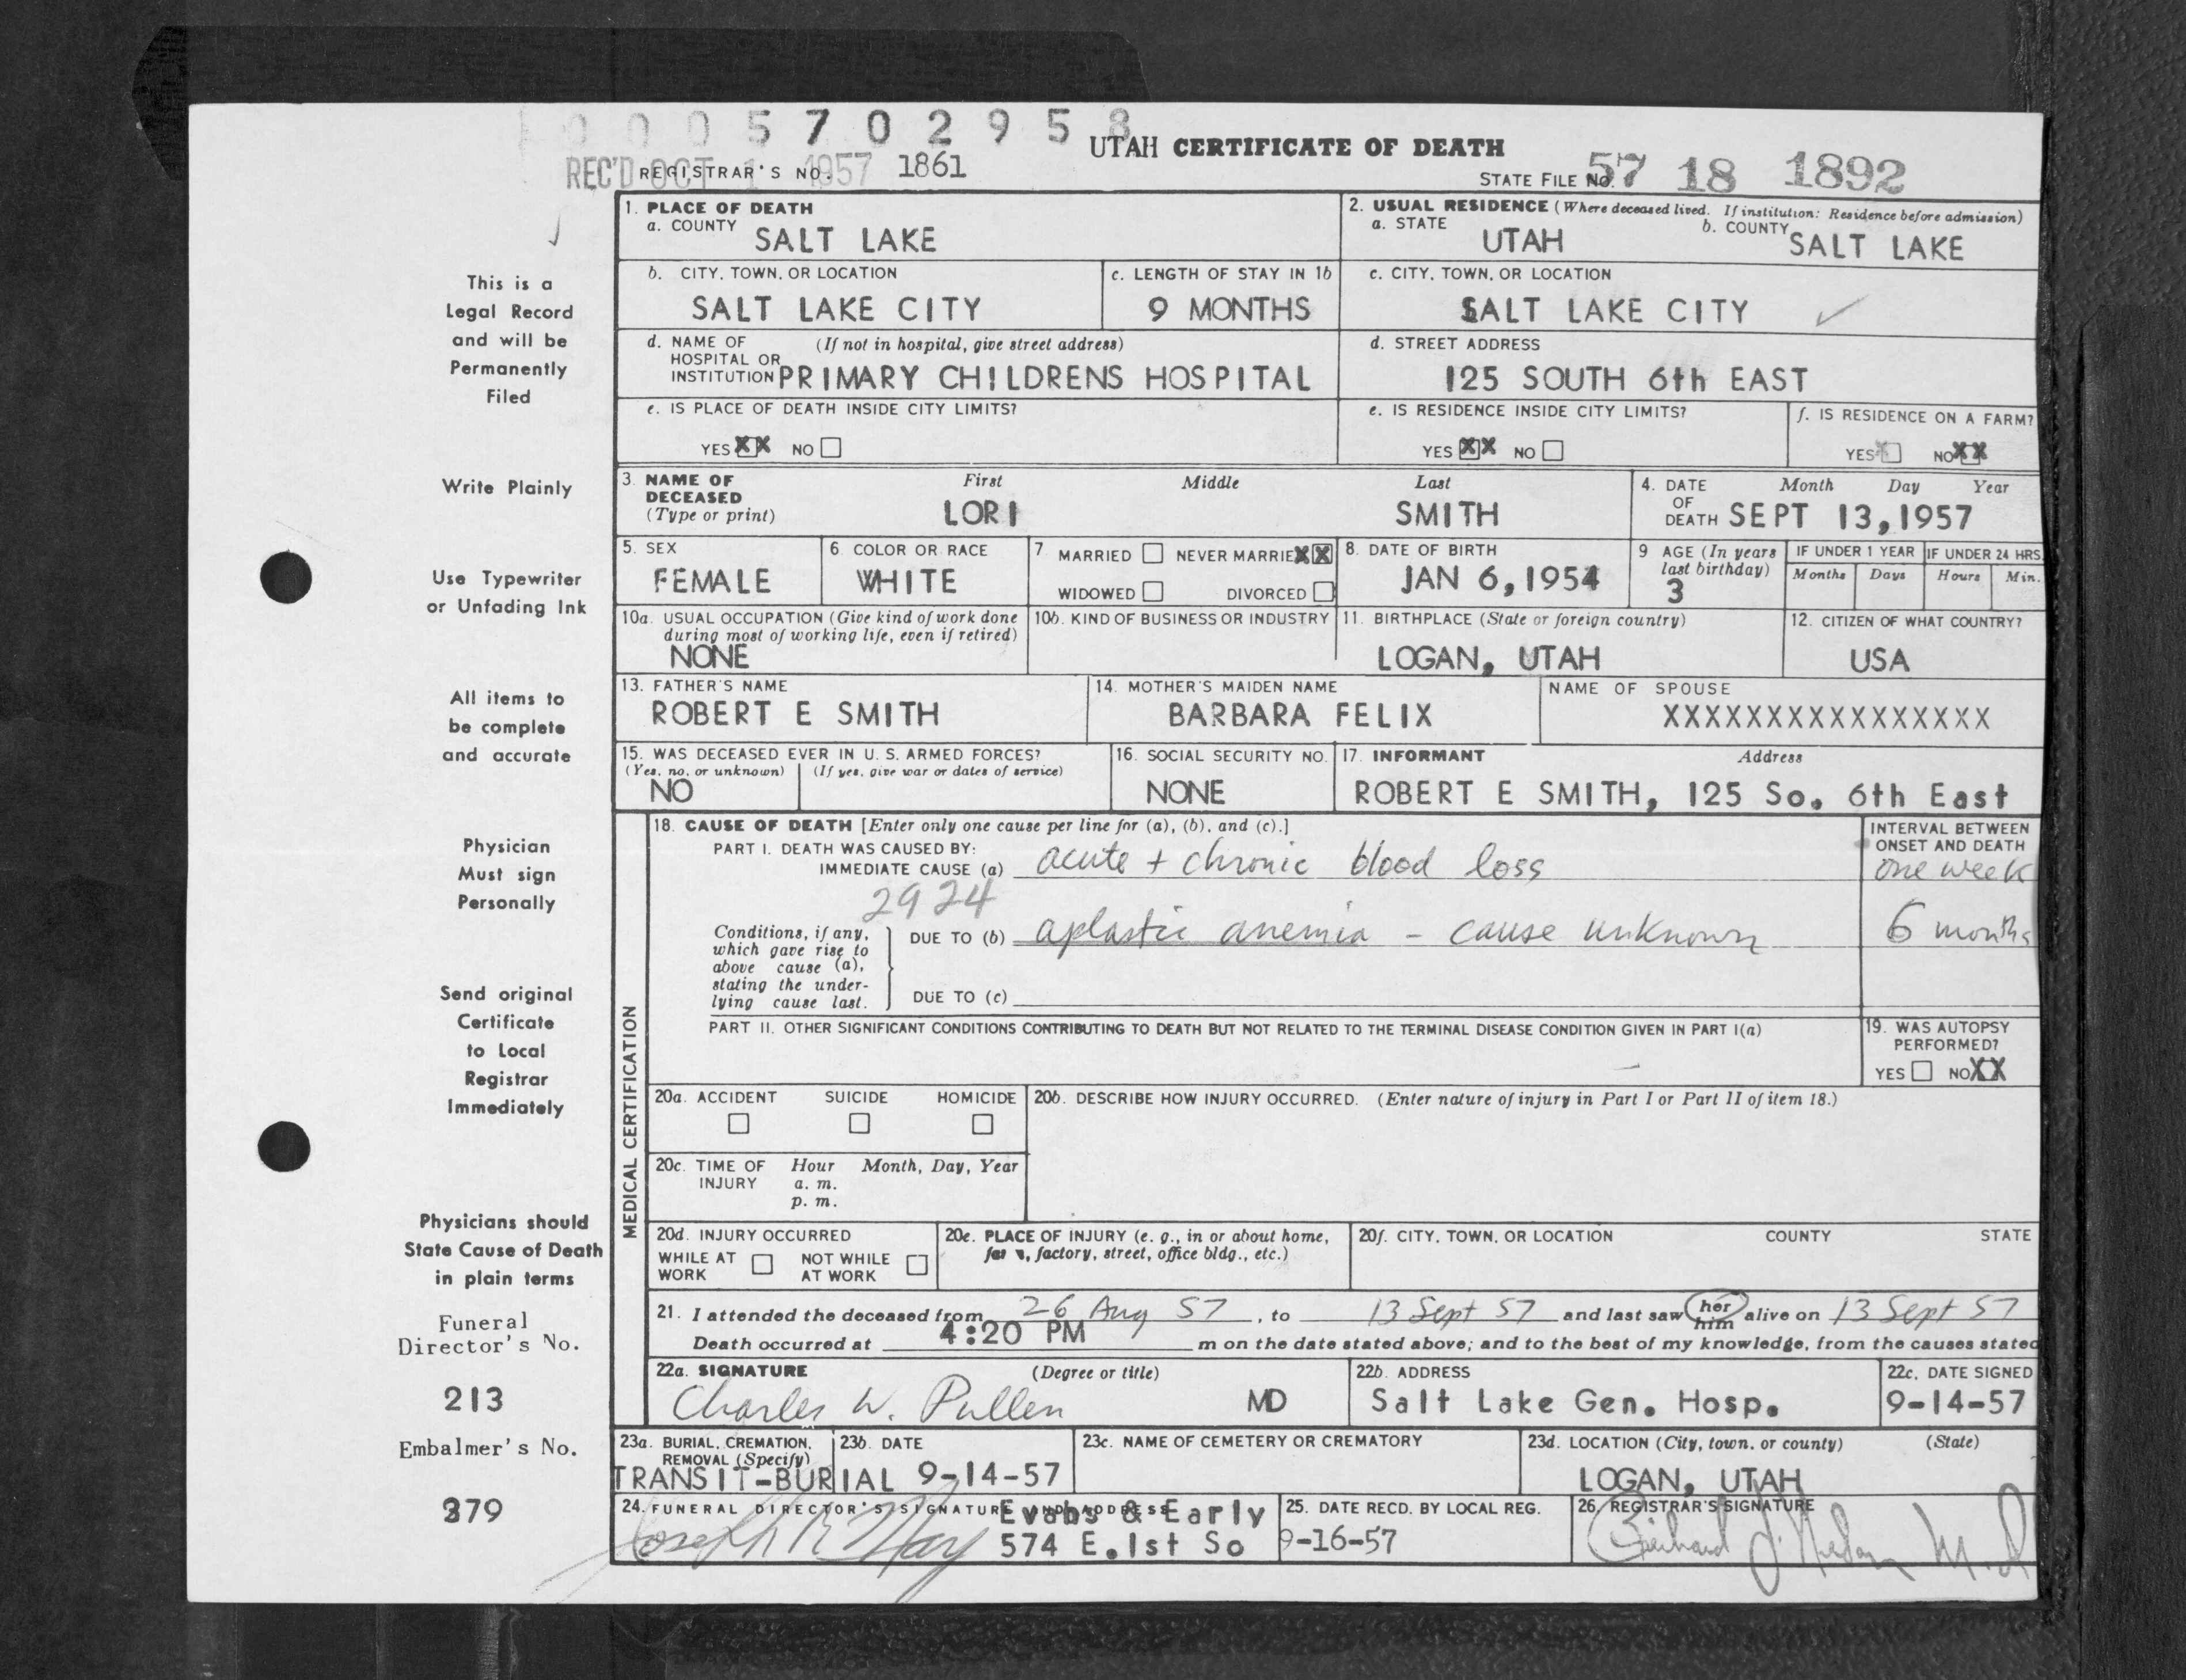 0005702958
UTAH CERTIFICATE OF DEATH
REC'D OCT 1 1957
REGISTRAR'S NO. 1861
STATE FILE No. 57 18 1892
This is a
Legal Record
and will be
Permanently
Filed
Write Plainly
Use Typewriter
or Unfading Ink
All items to
be complete
and accurate
Physician
Must sign
Personally
Send original
Certificate
to Local
Registrar
Immediately
Physicians should
State Cause of Death
in plain terms
Funeral
Director's No.
213
Embalmer's No.
379
1. PLACE OF DEATH
a. COUNTY SALT LAKE
2. USUAL RESIDENCE (Where deceased lived. If institution: Residence before admission)
a. STATE UTAH b. COUNTY SALT LAKE
b. CITY, TOWN, OR LOCATION
SALT LAKE CITY
c. LENGTH OF STAY IN 1b
9 MONTHS
c. CITY, TOWN, OR LOCATION
SALT LAKE CITY
d. NAME OF (If not in hospital, give street address)
HOSPITAL OR
INSTITUTION PRIMARY CHILDRENS HOSPITAL
d. STREET ADDRESS
125 SOUTH 6th EAST
e. IS PLACE OF DEATH INSIDE CITY LIMITS?
YES XX NO
e. IS RESIDENCE INSIDE CITY LIMITS?
YES XX NO
f. IS RESIDENCE ON A FARM?
YES X NO XX
3. NAME OF DECEASED (Type or print)
First Middle Last
LORI SMITH
4. DATE OF DEATH Month Day Year
SEPT 13, 1957
5. SEX
FEMALE
6. COLOR OR RACE
WHITE
7 MARRIED NEVER MARRIED XX
WIDOWED DIVORCED
8. DATE OF BIRTH
JAN 6, 1954
9 AGE (In years last birthday)
3
IF UNDER 1 YEAR
Months Days
IF UNDER 24 HRS.
Hours Min.
10a. USUAL OCCUPATION (Give kind of work done
during most of working life, even if retired)
NONE
10b. KIND OF BUSINESS OR INDUSTRY
11. BIRTHPLACE (State or foreign country)
LOGAN, UTAH
12. CITIZEN OF WHAT COUNTRY?
USA
13. FATHER'S NAME
ROBERT E SMITH
14. MOTHER'S MAIDEN NAME
BARBARA FELIX
NAME OF SPOUSE
XXXXXXXXXXXXXXXX
15. WAS DECEASED EVER IN U. S. ARMED FORCES?
(Yes, no, or unknown) (If yes, give war or dates of service)
NO
16. SOCIAL SECURITY NO.
NONE
17. INFORMANT Address
ROBERT E SMITH, 125 So. 6th East
MEDICAL CERTIFICATION
18. CAUSE OF DEATH [Enter only one cause per line for (a), (b), and (c).]
INTERVAL BETWEEN
ONSET AND DEATH
PART I. DEATH WAS CAUSED BY:
IMMEDIATE CAUSE (a) acute + chronic blood loss one week
2924
Conditions, if any,
which gave rise to
above cause (a),
stating the under-
lying cause last.
DUE TO (b) aplastic anemia - cause unknown 6 months
DUE TO (c)
PART II. OTHER SIGNIFICANT CONDITIONS CONTRIBUTING TO DEATH BUT NOT RELATED TO THE TERMINAL DISEASE CONDITION GIVEN IN PART I(a)
19. WAS AUTOPSY
PERFORMED?
YES NO XX
20a. ACCIDENT SUICIDE HOMICIDE
20b. DESCRIBE HOW INJURY OCCURRED. (Enter nature of injury in Part I or Part II of item 18.)
20c. TIME OF INJURY Hour Month, Day, Year
a. m.
p. m.
20d. INJURY OCCURRED
WHILE AT WORK NOT WHILE AT WORK
20e. PLACE OF INJURY (e. g., in or about home,
farm, factory, street, office bldg., etc.)
20f. CITY, TOWN, OR LOCATION COUNTY STATE
21. I attended the deceased from 26 Aug 57, to 13 Sept 57 and last saw her him alive on 13 Sept 57
Death occurred at 4:20 PM m on the date stated above; and to the best of my knowledge, from the causes stated
22a. SIGNATURE (Degree or title)
Charles W. Pullen MD
22b. ADDRESS
Salt Lake Gen. Hosp.
22c. DATE SIGNED
9-14-57
23a. BURIAL, CREMATION,
REMOVAL (Specify)
TRANSIT-BURIAL
23b. DATE
9-14-57
23c. NAME OF CEMETERY OR CREMATORY
23d. LOCATION (City, town, or county) (State)
LOGAN, UTAH
24. FUNERAL DIRECTOR'S SIGNATURE AND ADDRESS
Evans & Early
574 E. 1st So
25. DATE RECD. BY LOCAL REG.
9-16-57
26. REGISTRAR'S SIGNATURE